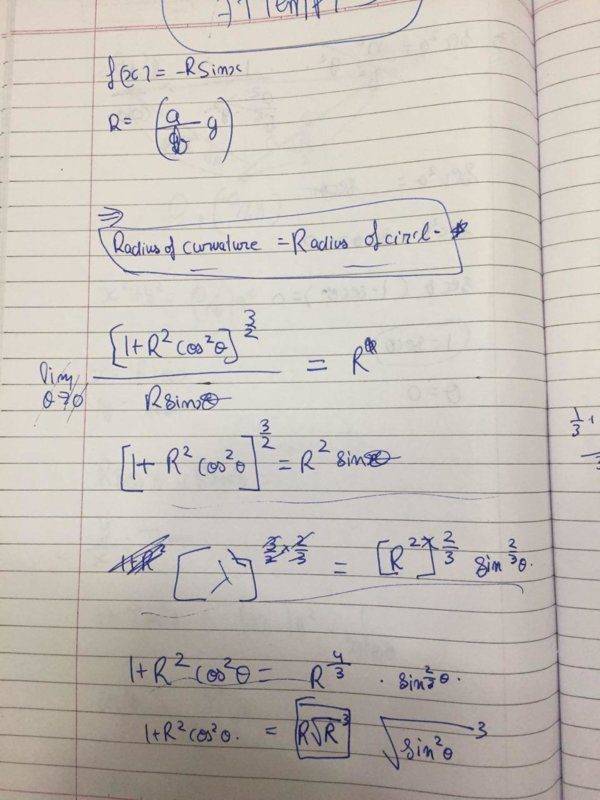 f(x) = -R Sinx
R = (a/g - g)
⇒ Radius of curvature = Radius of circle
lim θ→0 [1+R² cos²θ]^(3/2) / R sinθ = R
[1+ R² cos²θ]^(3/2) = R² sinθ
[ ]^(3/2 × 2/3) = [R²]^(2/3) sin^(2/3)θ.
1+R² cos²θ = R^(4/3) . sin^(2/3)θ.
1+R² cos²θ. = R√R³ √sin²θ³
1/3 +